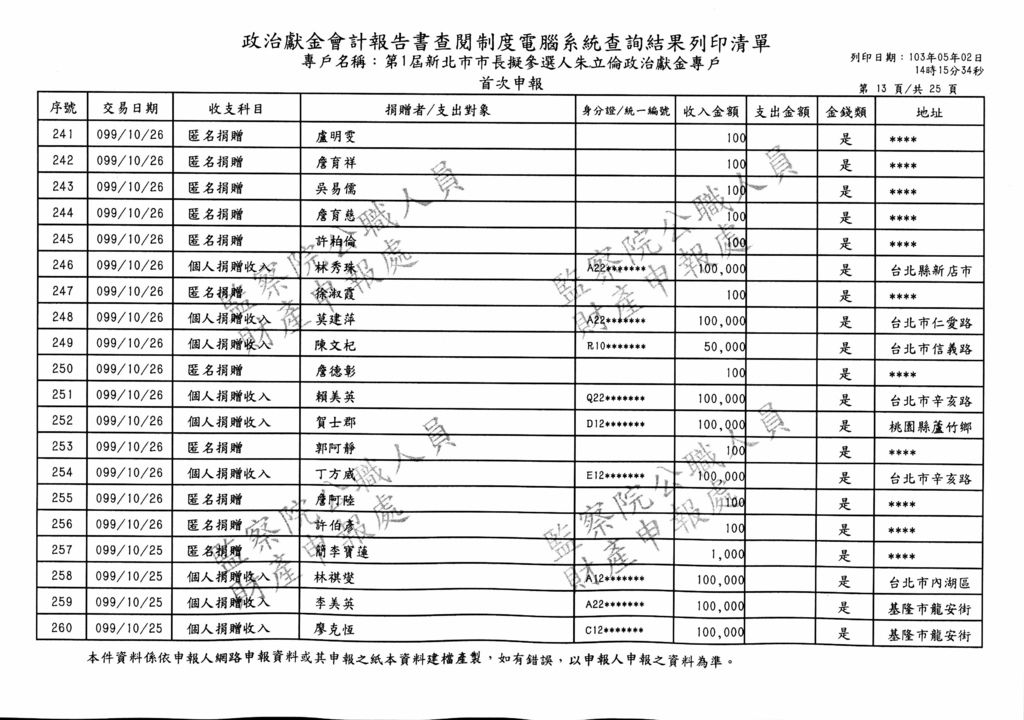 政治獻金會計報告書查閱制度電腦系統查詢結果列印清單
專戶名稱：第1屆新北市市長擬參選人朱立倫政治獻金專戶
首次申報
列印日期：103年05年02日
14時15分34秒
第 13 頁/共 25 頁
序號 交易日期 收支科目 捐贈者/支出對象 身分證/統一編號 收入金額 支出金額 金錢類 地址
241 099/10/26 匿名捐贈 盧明雯 100 是 ****
242 099/10/26 匿名捐贈 詹育祥 100 是 ****
243 099/10/26 匿名捐贈 吳易儒 100 是 ****
244 099/10/26 匿名捐贈 詹育慈 100 是 ****
245 099/10/26 匿名捐贈 許柏倫 100 是 ****
246 099/10/26 個人捐贈收入 林秀珠 A22******* 100,000 是 台北縣新店市
247 099/10/26 匿名捐贈 徐淑霞 100 是 ****
248 099/10/26 個人捐贈收入 莫建萍 A22******* 100,000 是 台北市仁愛路
249 099/10/26 個人捐贈收入 陳文杞 R10******* 50,000 是 台北市信義路
250 099/10/26 匿名捐贈 詹德彰 100 是 ****
251 099/10/26 個人捐贈收入 賴美英 Q22******* 100,000 是 台北市辛亥路
252 099/10/26 個人捐贈收入 賀士郡 D12******* 100,000 是 桃園縣蘆竹鄉
253 099/10/26 匿名捐贈 郭阿靜 100 是 ****
254 099/10/26 個人捐贈收入 丁方威 E12******* 100,000 是 台北市辛亥路
255 099/10/26 匿名捐贈 詹阿陸 100 是 ****
256 099/10/26 匿名捐贈 許伯彥 100 是 ****
257 099/10/26 匿名捐贈 簡李寶蓮 1,000 是 ****
258 099/10/25 個人捐贈收入 林祺燮 A12******* 100,000 是 台北市內湖區
259 099/10/25 個人捐贈收入 李美英 A22******* 100,000 是 基隆市龍安街
260 099/10/25 個人捐贈收入 廖克恆 C12******* 100,000 是 基隆市龍安街
本件資料係依申報人網路申報資料或其申報之紙本資料建檔產製，如有錯誤，以申報人申報之資料為準。
監察院公職人員
財產申報處
監察院公職人員
財產申報處
監察院公職人員
財產申報處
監察院公職人員
財產申報處